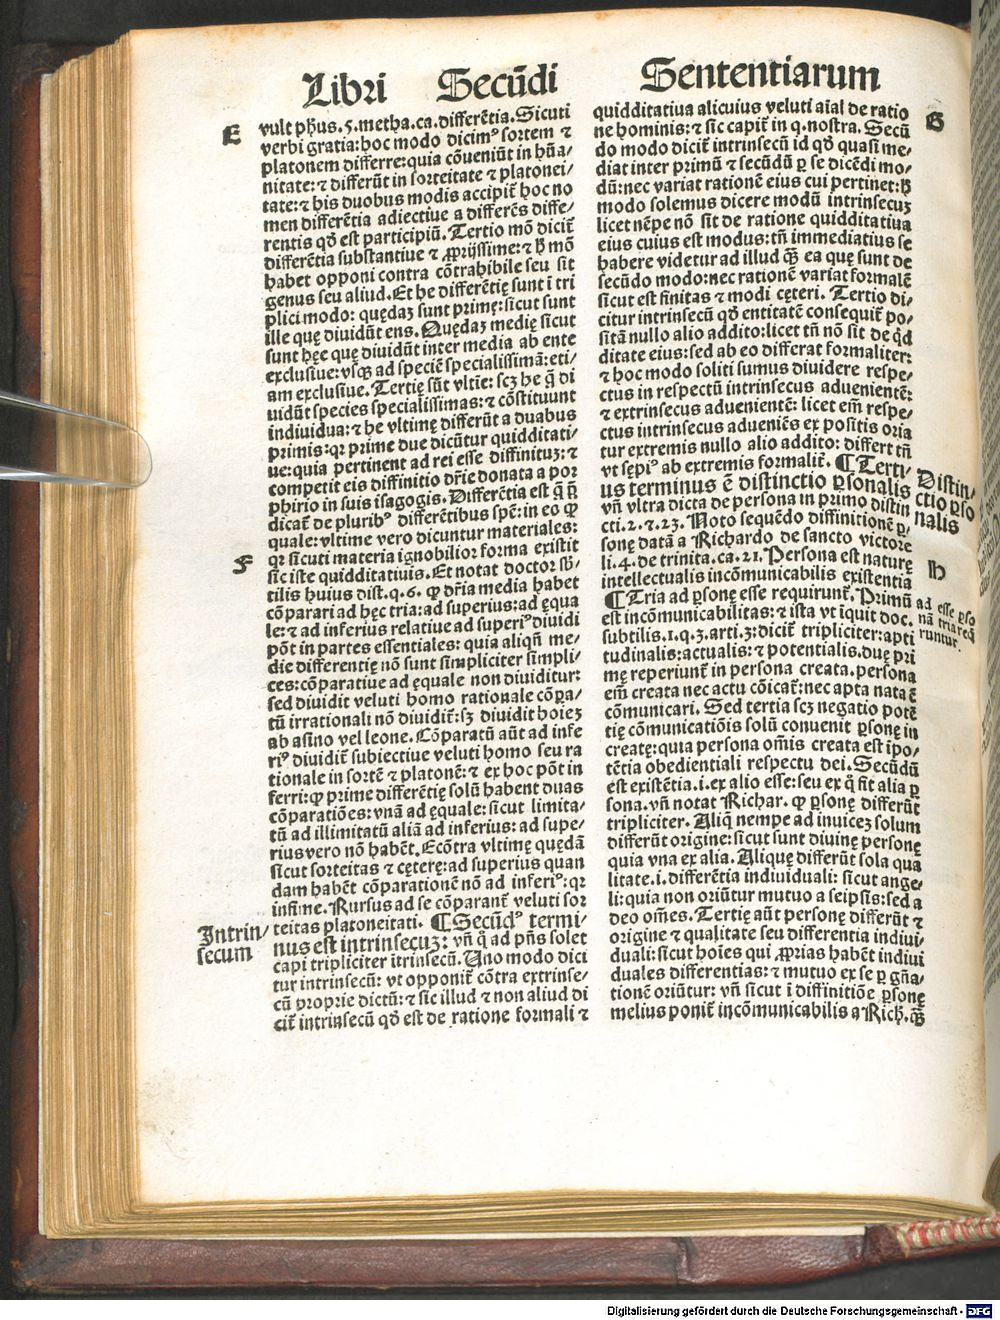 Libri Secūdi Sententiarum
E
vult phus.5.metha.ca.differētia.Sicuti
verbi gratia:hoc modo dicimꝰ sortem ⁊
platonem differre:quia cōueniūt in hūa/
nitate:⁊ differūt in sorteitate ⁊ platonei/
tate:⁊ his duobus modis accipit̄ hoc no
men differētia adiectiue a differēs diffe/
rentis qđ est participiū.Tertio mō dicit̄
differētia substantiue ⁊ ꝓprijssime:⁊ ħ mō
habet opponi contra cōtrahibile seu sit
genus seu aliud.Et he differētię sunt ī tri
plici modo: quędaꝫ sunt primę:sicut sunt
ille quę diuidūt ens.Quędaꝫ medię sicut
sunt hęe quę diuidūt inter media ab ente
exclusiue:vsqꝫ ad speciē specialissimā:eti/
am exclusiue.Tertię sūt vltīe: scꝫ he q̄ di
uidūt species specialissimas:⁊ cōstituunt
indiuidua:⁊ he vltimę differūt a duabus
primis:qr prime due dicūtur quidditati/
ue:quia pertinent ad rei esse diffinituꝫ:⁊
competit eis diffinitio dr̄ie donata a por
phirio in suis isagogis.Differētia est q̄ p̄
dicat̄ de pluribꝰ differētibus spē:in eo ꝙ
quale:vltime vero dicuntur materiales:
qr sicuti materia ignobilior forma existit
F
sic iste quidditatiuis.Et notat doctor sb̄/
tilis huius dist.q.6. ꝙ dr̄ia media habet
cōparari ad hęc tria:ad superius:ad ęqua
le:⁊ ad inferius relatiue ad superiꝰ diuidi
pōt in partes essentiales: quia aliqn̄ me/
die differentię nō sunt simpliciter simpli/
ces:cōparatiue ad ęquale non diuiditur:
sed diuidit veluti homo rationale cōpa/
tū irrationali nō diuidit̄:sꝫ diuidit hoieꝫ
ab asino vel leone.Cōparatū aūt ad infe
riꝰ diuidit̄ subiectiue veluti homo seu ra
tionale in sortē ⁊ platonē:⁊ ex hoc pōt in
ferri:ꝙ prime differētię solū habent duas
cōparatiōes:vnā ad ęquale:sicut limita/
tū ad illimitatū aliā ad inferius:ad supe/
rius vero nō habēt.Ecōtra vltimę quędā
sicut sorteitas ⁊ cęterę:ad superius quan
dam habēt cōparationē nō ad inferiꝰ:qr
infime.Rursus ad se cōparant̄ veluti sor
teitas platoneitati. ¶Secūdꝰ termi/
Intrin/
secum
nus est intrinsecuꝫ: vn̄ q̄ ad pn̄s solet
capi tripliciter ītrinsecū.Uno modo dici
tur intrinsecū: vt opponit̄ cōtra extrinse/
cū proprie dictū:⁊ sic illud ⁊ non aliud di
cit̄ intrinsecū qđ est de ratione formali ⁊
quidditatiua alicuius veluti aīal de ratio
G
ne hominis:⁊ sic capit̄ in q.nostra. Secū
do modo dicit̄ intrinsecū id qđ quasi me/
diat inter primū ⁊ secūdū ꝑ se dicēdi mo/
dū:nec variat rationē eius cui pertinet:ħ
modo solemus dicere modū intrinsecuꝫ
licet nēpe nō sit de ratione quidditatiua
eius cuius est modus:tn̄ immediatius se
habere videtur ad illud qꝫ ea quę sunt de
secūdo modo:nec rationē variat formalē
sicut est finitas ⁊ modi cęteri. Tertio di/
citur intrinsecū qđ entitatē consequit̄ po/
sitā nullo alio addito:licet tn̄ nō sit de qd
ditate eius:sed ab eo differat formaliter:
⁊ hoc modo soliti sumus diuidere respe/
ctus in respectū intrinsecus aduenientē:
⁊ extrinsecus aduenientē: licet em̄ respe/
ctus intrinsecus adueniēs ex positis oria
tur extremis nullo alio addito: differt tn̄
vt sepiꝰ ab extremis formalit̄. ¶Terti/
Distin/
ctio ꝑso
nalis
us terminus ē distinctio ꝑsonalis
vn̄ vltra dicta de persona in primo distin
cti.2.⁊.23. Noto sequēdo diffinitionē ꝑ/
sonę datā a Richardo de sancto victore
li.4.de trinita.ca.21.Persona est naturę
H
intellectualis incōmunicabilis existentia
¶Tria ad ꝑsonę esse requirunt̄.Primū
ad esse ꝑso
nā tria req̄
runtur.
est incōmunicabilitas:⁊ ista vt īquit doc.
subtilis.1.q.3.arti.3:dicit̄ tripliciter:apti
tudinalis:actualis:⁊ potentialis.duę pri
mę reperiunt̄ in persona creata.persona
em̄ creata nec actu cōicat̄:nec apta nata ē
cōmunicari. Sed tertia scꝫ negatio potē
tię cōmunicatiōis solū conuenit ꝑsonę in
creatę:quia persona om̄is creata est īpo/
tētia obedientiali respectu dei.Secūdū
est existētia.i.ex alio esse:seu ex q̄ fit alia ꝑ
sona.vn̄ notat Richar. ꝙ ꝑsonę differūt
tripliciter. Aliq̄ nempe ad inuiceꝫ solum
differūt origine:sicut sunt diuinę personę
quia vna ex alia. Aliquę differūt sola qua
litate.i.differētia indiuiduali: sicut ange/
li:quia non oriūtur mutuo a seipsis:sed a
deo om̄es.Tertię aūt personę differūt ⁊
origine ⁊ qualitate seu differentia indiui/
duali:sicut hoīes qui ꝓprias habēt indiui
duales differentias:⁊ mutuo ex se ꝑ gn̄a/
tionē oriūtur: vn̄ sicut ī diffinitiōe ꝑsonę
melius ponit̄ incōmunicabilis a Rich.qꝫ
Digitalisierung gefördert durch die Deutsche Forschungsgemeinschaft - DFG